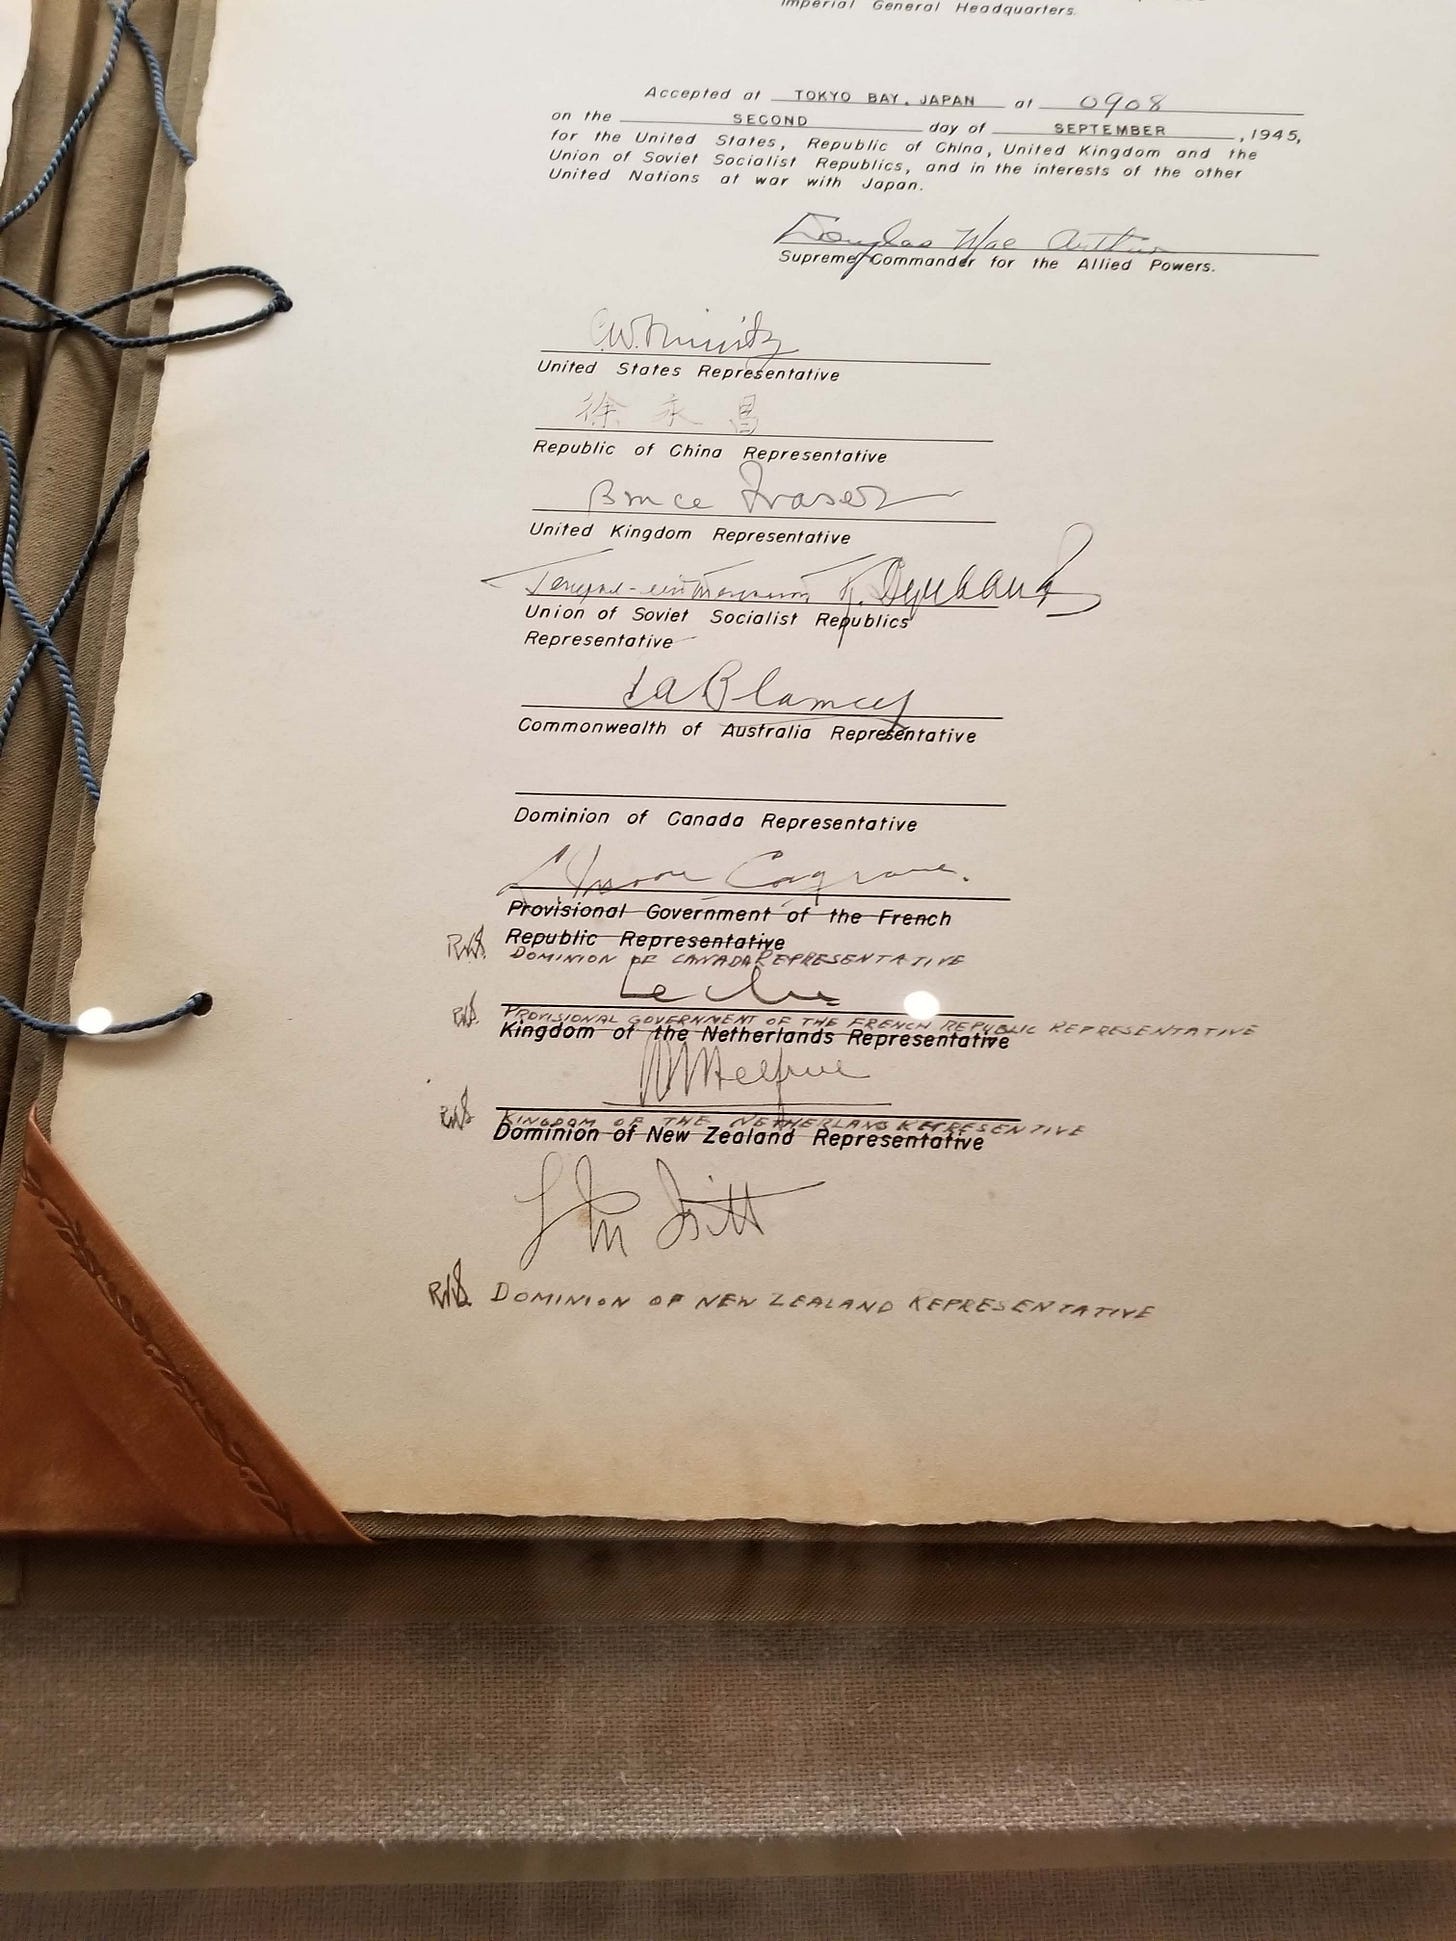 Imperial General Headquarters.
Accepted at TOKYO BAY, JAPAN at 0908
on the SECOND day of SEPTEMBER, 1945,
for the United States, Republic of China, United Kingdom and the
Union of Soviet Socialist Republics, and in the interests of the other
United Nations at war with Japan.
Douglas MacArthur
Supreme Commander for the Allied Powers.
C.W. Nimitz
United States Representative
徐永昌
Republic of China Representative
Bruce Fraser
United Kingdom Representative
Генерал-лейтенант К. Деревянко
Union of Soviet Socialist Republics
Representative
T.A. Blamey
Commonwealth of Australia Representative
Dominion of Canada Representative
L. Moore Cosgrave.
Provisional Government of the French
Republic Representative
R.K.S. DOMINION OF CANADA REPRESENTATIVE
Leclerc
R.K.S. PROVISIONAL GOVERNMENT OF THE FRENCH REPUBLIC REPRESENTATIVE
Kingdom of the Netherlands Representative
Helfrich
R.K.S. KINGDOM OF THE NETHERLANDS REPRESENTATIVE
Dominion of New Zealand Representative
L M Isitt
R.K.S. DOMINION OF NEW ZEALAND REPRESENTATIVE